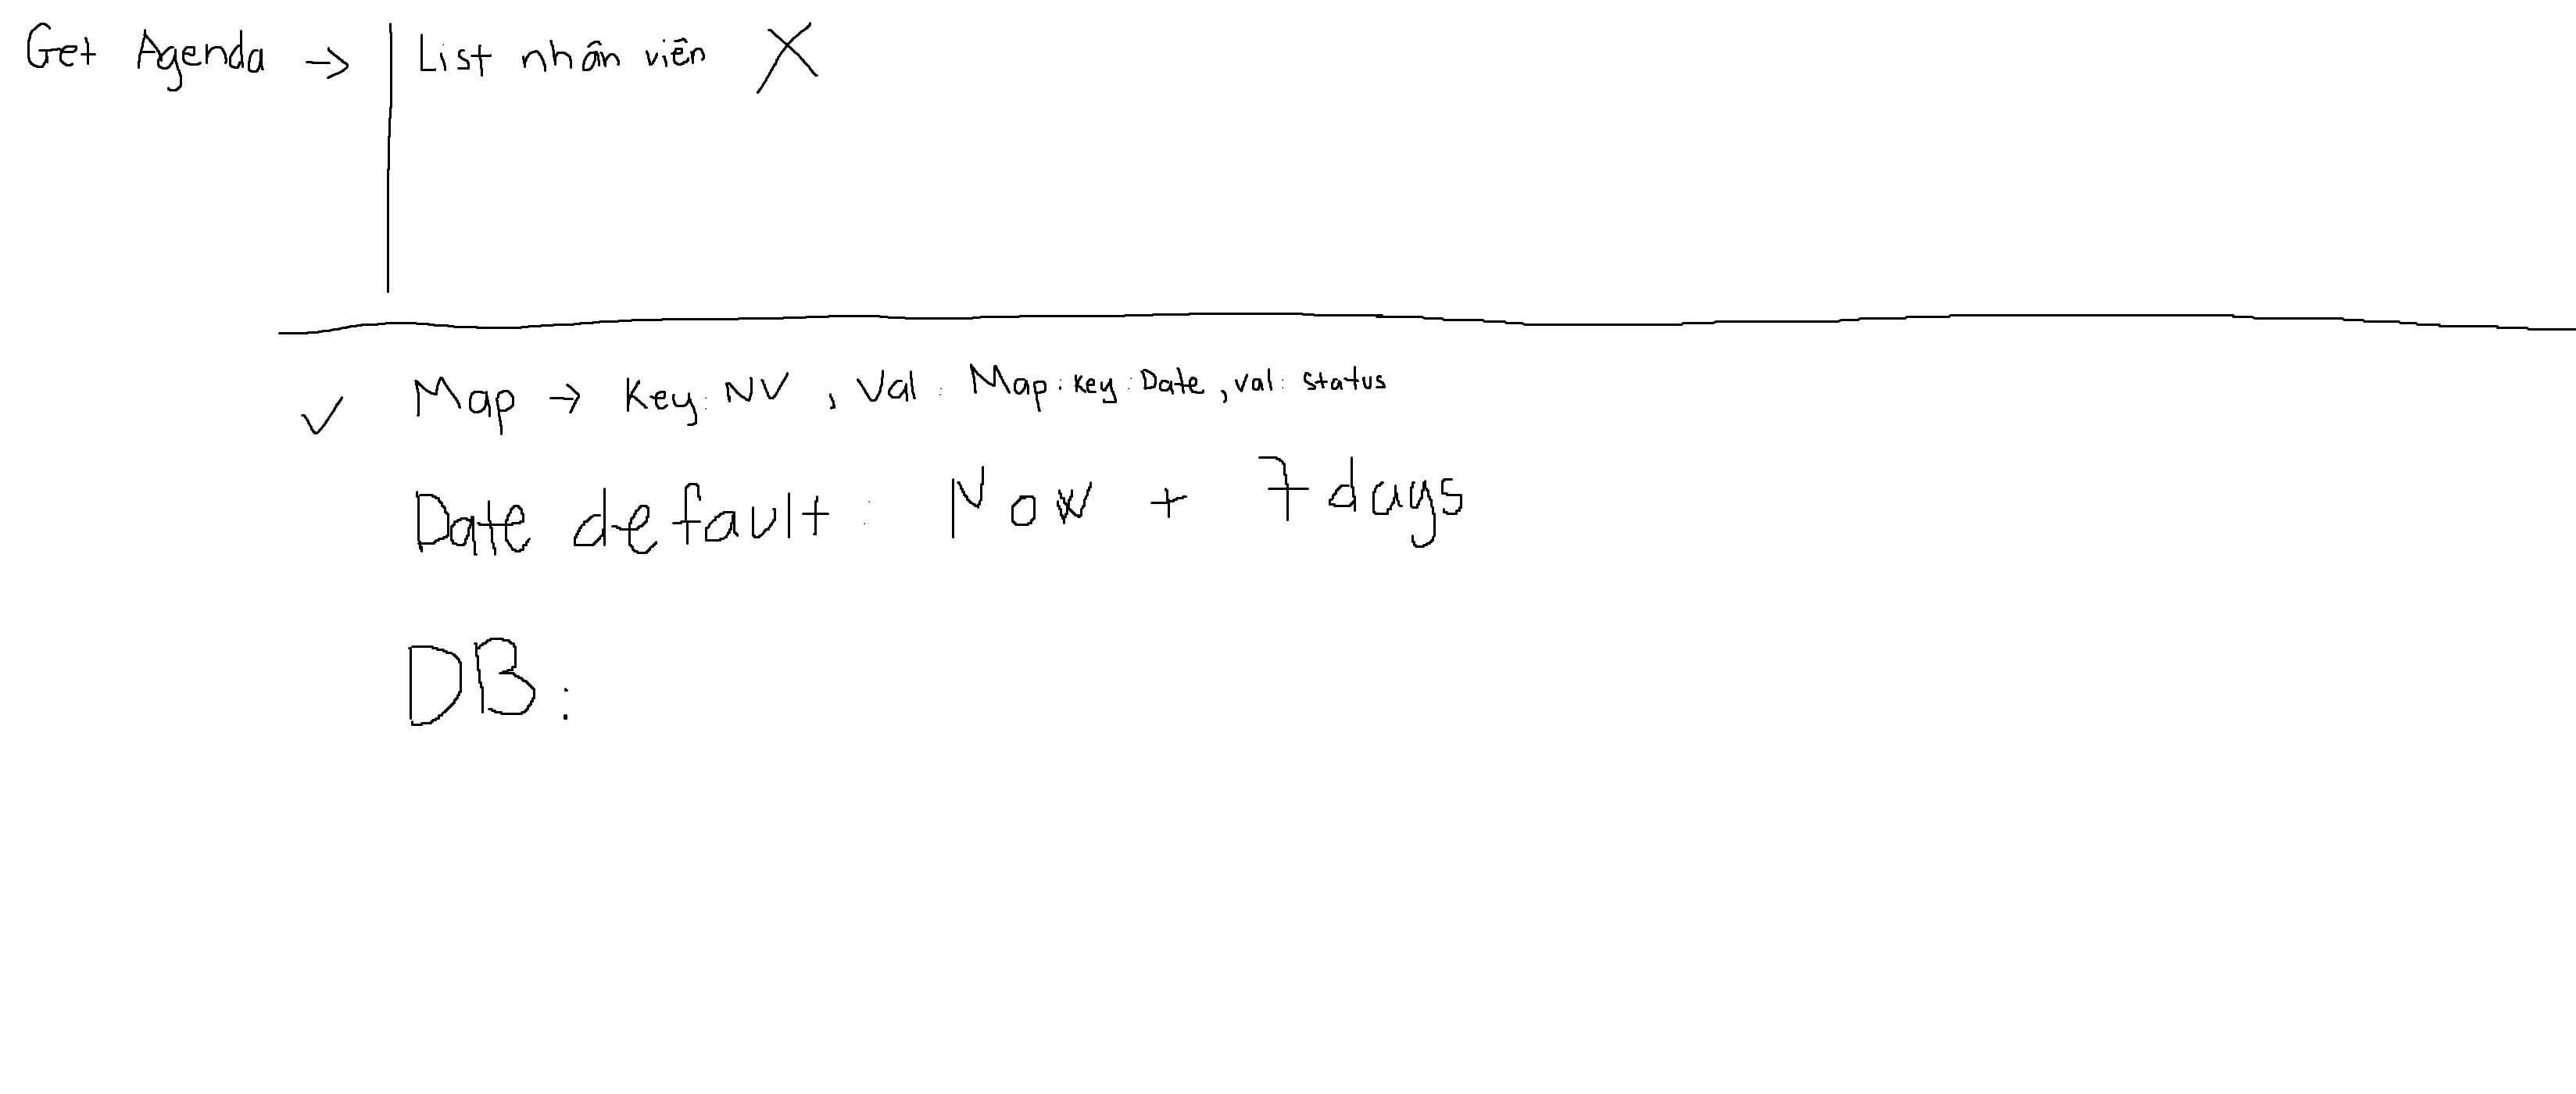 Get Agenda → List nhân viên X
✓ Map → Key: NV, Val: Map: Key: Date, val: status
Date default: Now + 7 days
DB: